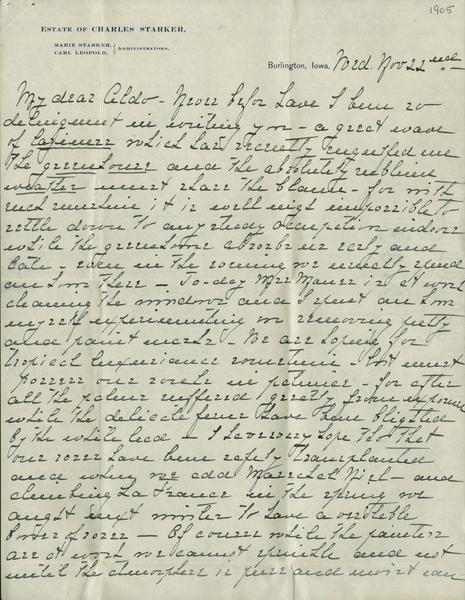 1905
ESTATE OF CHARLES STARKER,
MARIE STARKER,
CARL LEOPOLD, } ADMINISTRATORS.
Burlington, Iowa, Wed. Nov 22nd
My dear Aldo - Never before have I been so
delinquent in writing you - a great wave
of laziness which has recently engulfed me
the greenhouse and the absolutely sublime
weather must share the blame - for with
such sunshine it is well nigh impossible to
settle down to any steady occupation indoors
while the greenhouse absorbs me early and
late - even in the evening we usually spend
an hour there - To-day Mrs Maner is at work
cleaning the windows and I spent an hour
myself experimenting on removing putty
and paint marks - We are hoping for
tropical luxuriance sometime - but must
possess our souls in patience - for after
all the palms suffered greatly from exposure
while the delicate ferns have been blighted
by the white lead - I however hope that
our roses have been safely transplanted
and when we add Marechal Niel - and
climbing La France in the spring we
ought next winter to have a veritable
bower of roses - Of course while the painters
are at work we cannot sprinkle and not
until the atmosphere is pure and moist can